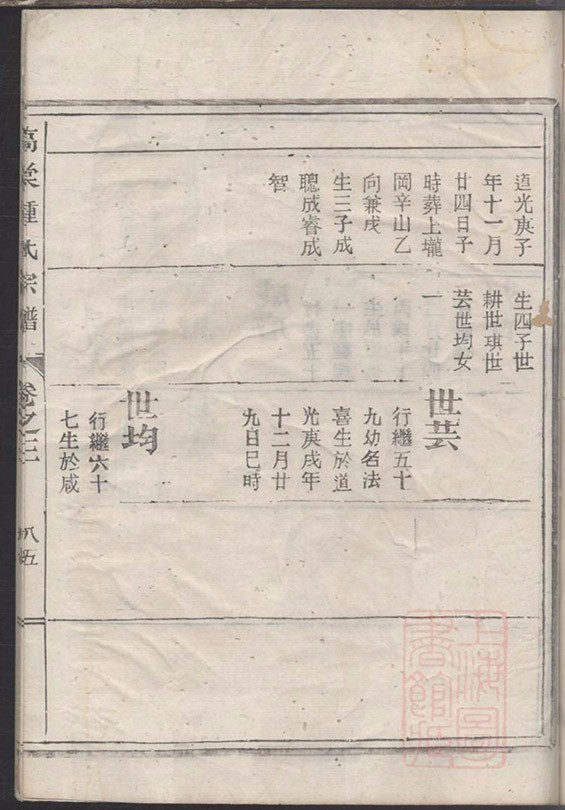 道光庚子
年十一月
廿四日子
時葬上壠
岡辛山乙
向兼戌
生三子成
聰成睿成
智
生四子世
耕世琪世
芸世均女
一
世芸
行繼五十
九幼名法
喜生於道
光庚戌年
十二月廿
九日巳時
世均
行繼六十
七生於咸
鍾氏宗譜
卷之三
八五
上海圖
書館藏